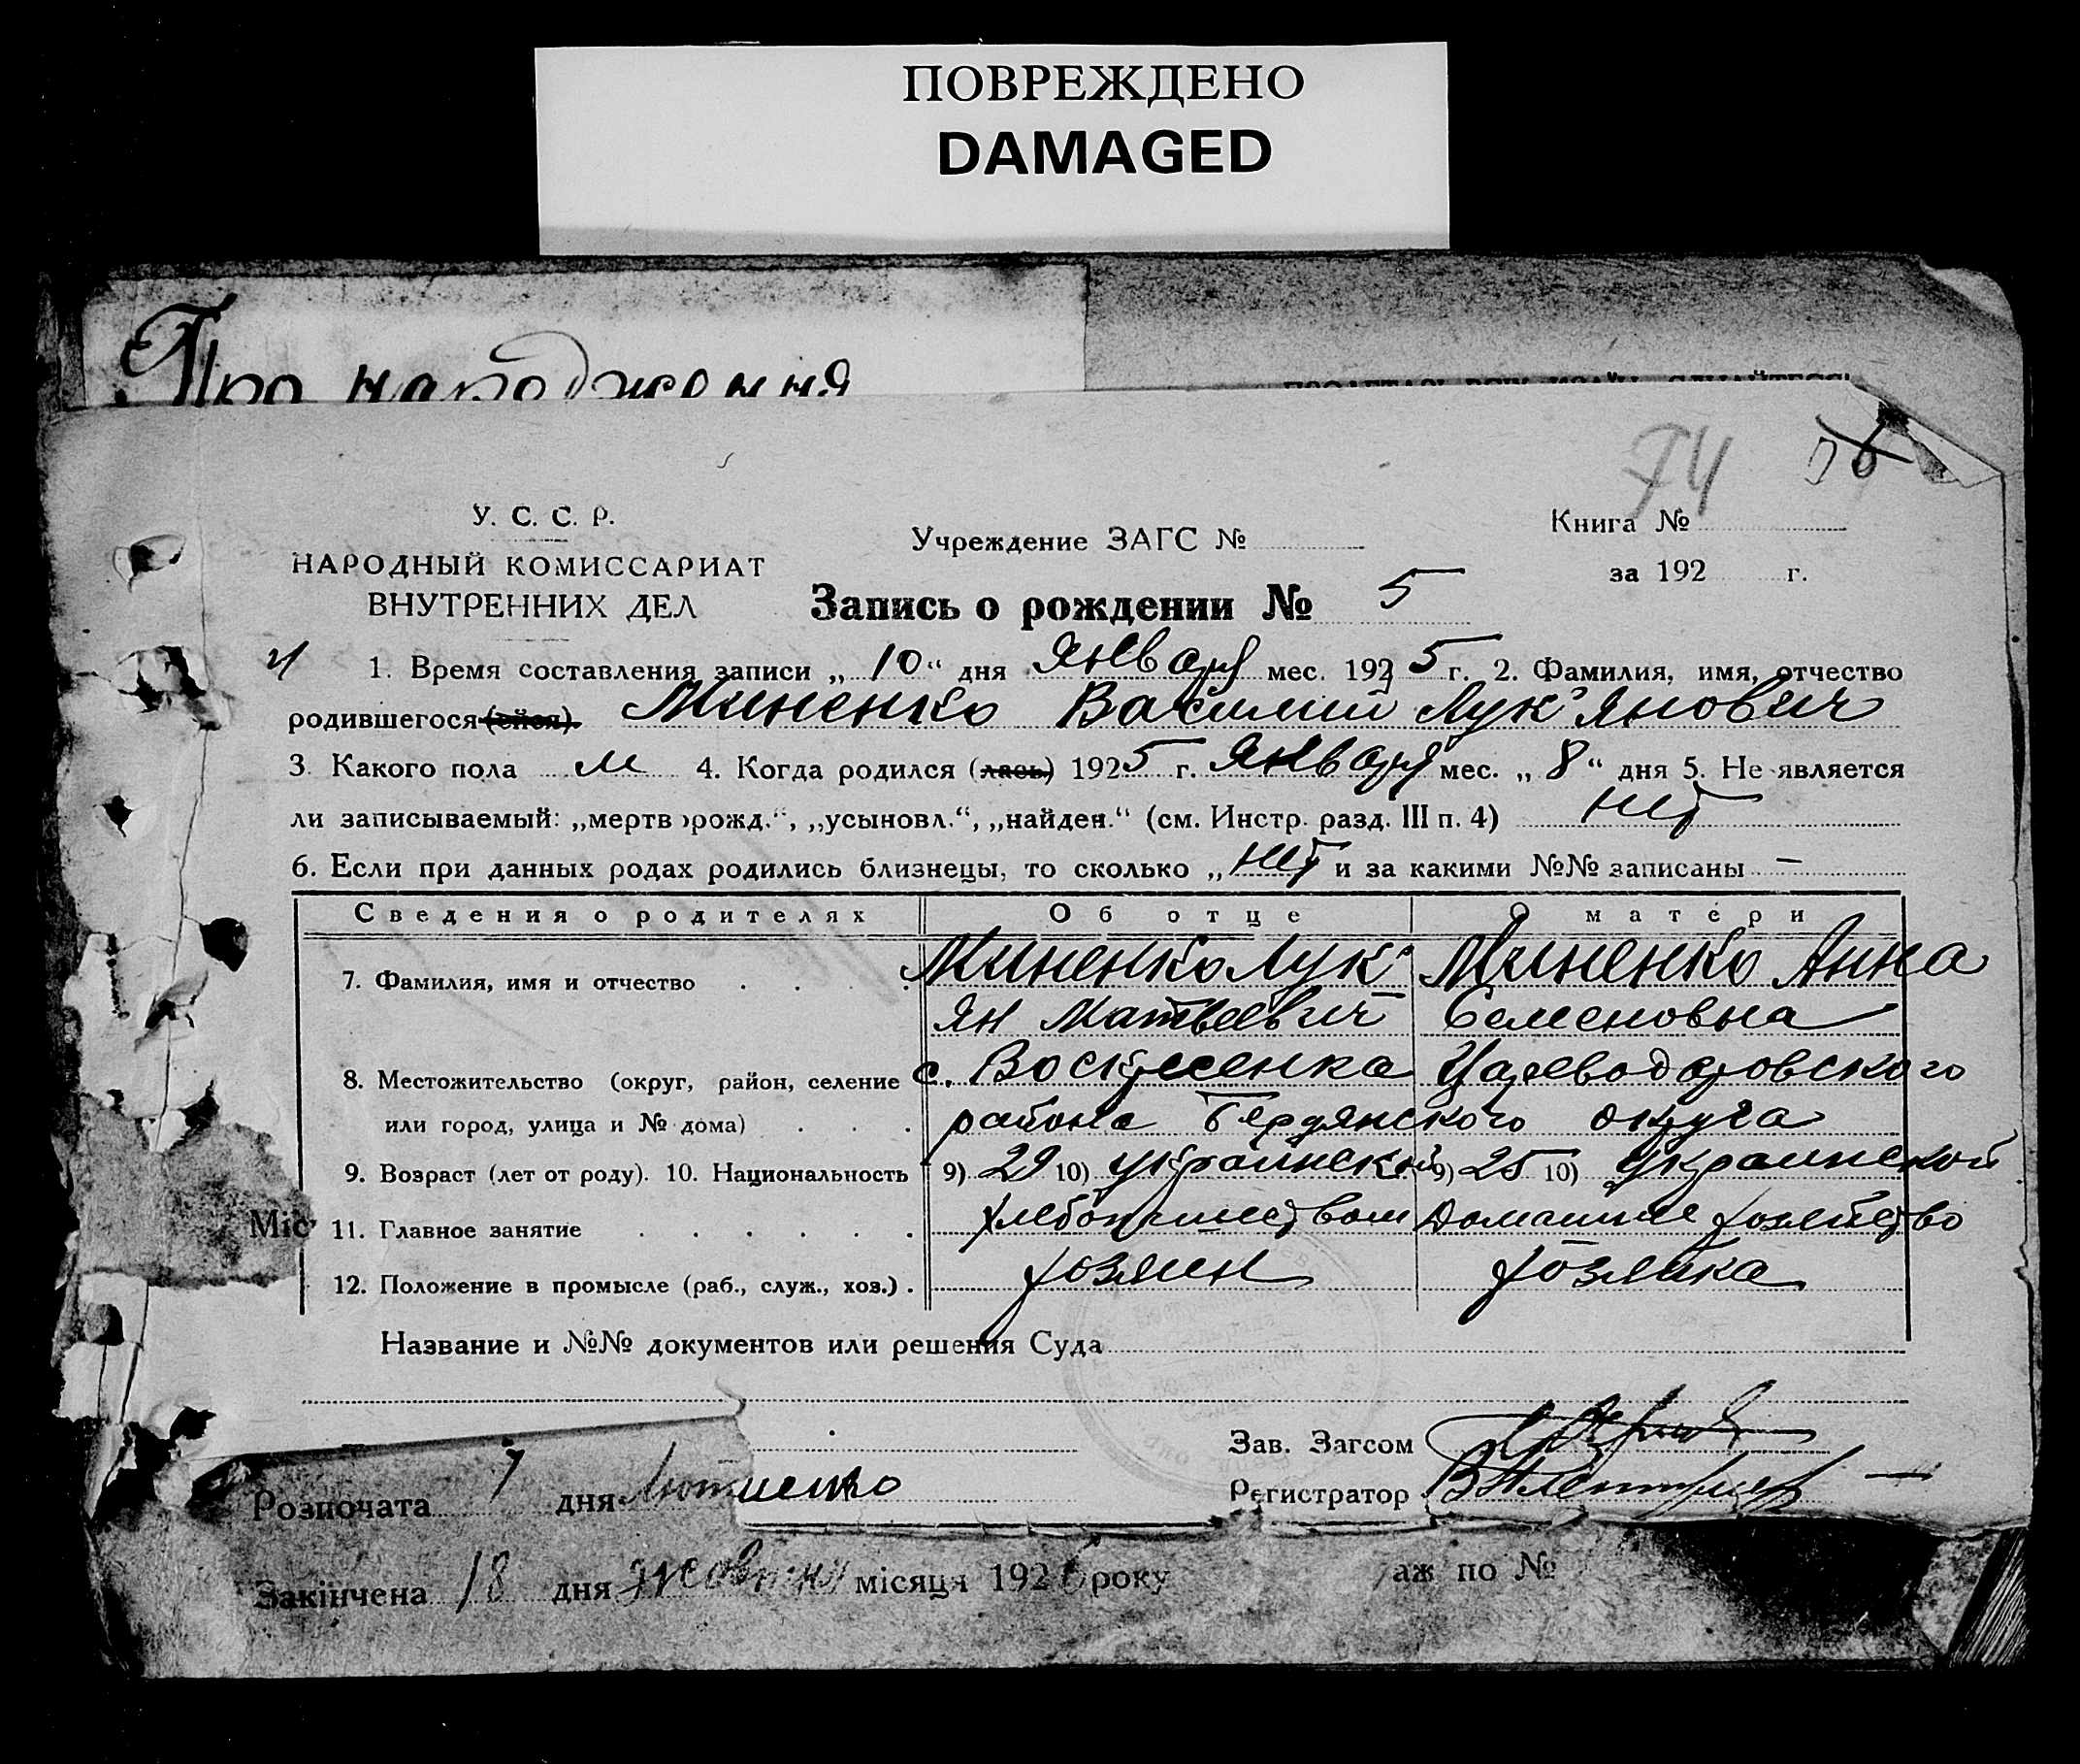 ПОВРЕЖДЕНО
DAMAGED
Про народження
74
У. С. С. Р.
НАРОДНЫЙ КОМИССАРИАТ
ВНУТРЕННИХ ДЕЛ
Учреждение ЗАГС №
Книга №
за 192 г.
Запись о рождении № 5
1. Время составления записи „ 10 “ дня Января мес. 1925 г. 2. Фамилия, имя, отчество
родившегося (ейся) Миненко Василий Лук'янович
3. Какого пола м 4. Когда родился (лась) 1925 г. Января мес. „ 8 “ дня 5. Не является
ли записываемый: „мертворожд.“, „усыновл.“, „найден.“ (см. Инстр. разд. III п. 4) нет
6. Если при данных родах родились близнецы, то сколько „ нет и за какими №№ записаны —
Сведения о родителях Об отце О матери
7. Фамилия, имя и отчество . . . . Миненко Лук' Миненко Анна
ян Матвеевич Семеновна
8. Местожительство (округ, район, селение с. Воскресенка Цареводаровского
или город, улица и № дома) . . . района Бердянского округа
9. Возраст (лет от роду). 10. Национальность 9) 29 10) украинской 9) 25 10) украинской
Міс
11. Главное занятие . . . . . . хлебопашеством Домашнее хозяйство
12. Положение в промысле (раб., служ., хоз.) . хозяин хозяйка
Название и №№ документов или решения Суда
Зав. Загсом
Розпочата 7 дня
Регистратор
Закінчена 18 дня жовтня місяця 1926 року аж по №